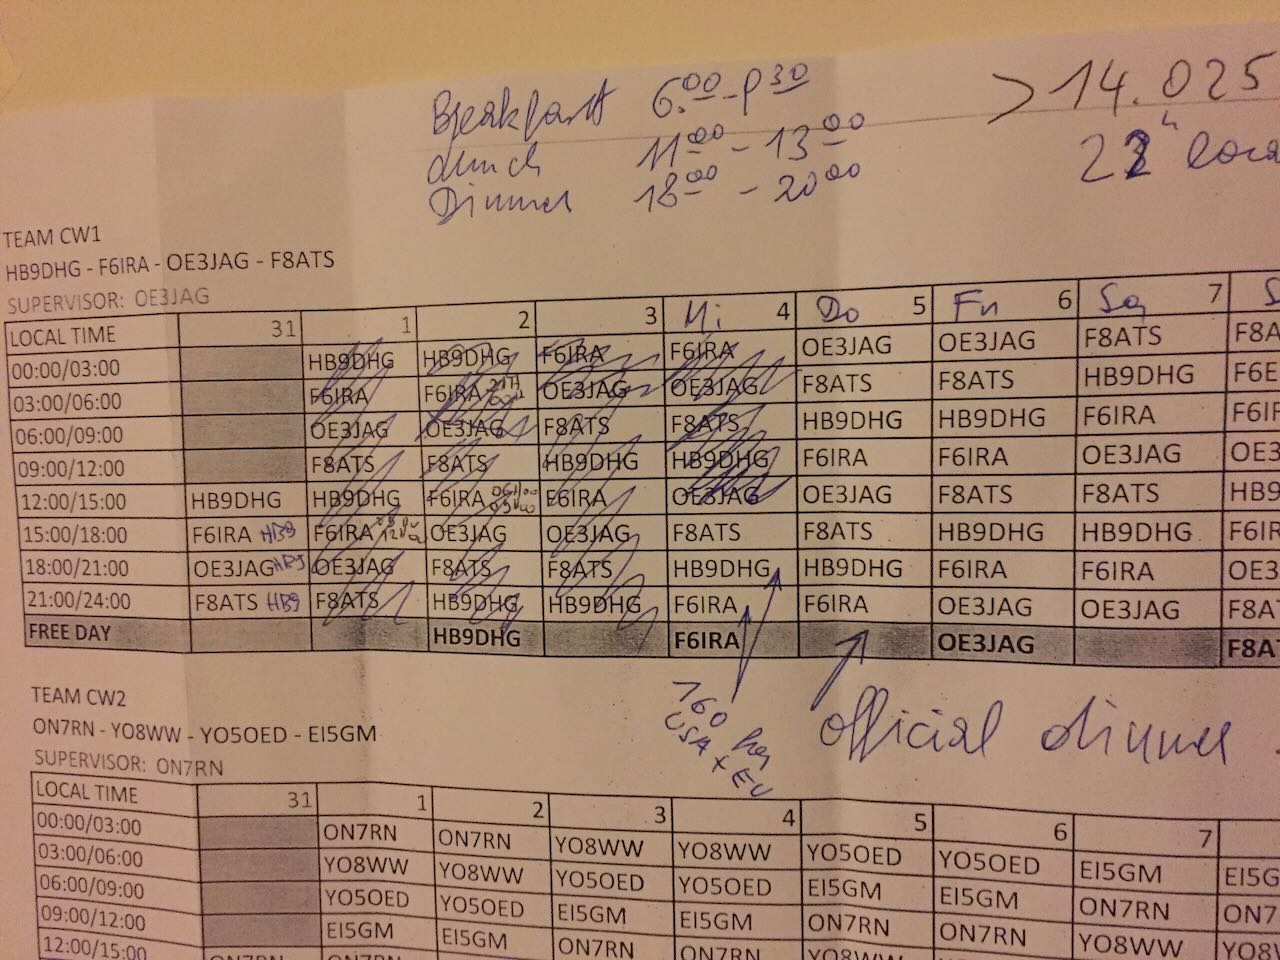 Breakfast 6.00 - 8 30
Lunch 11 00 - 13 00
Dinner 18 00 - 20 00
> 14.025
22 h loca
TEAM CW1
HB9DHG - F6IRA - OE3JAG - F8ATS
SUPERVISOR: OE3JAG
LOCAL TIME 31 1 2 3 Mi 4 Do 5 Fr 6 Sa 7 S
00:00/03:00 HB9DHG HB9DHG F6IRA F6IRA OE3JAG OE3JAG F8ATS F8A
03:00/06:00 F6IRA F6IRA OE3JAG OE3JAG F8ATS F8ATS HB9DHG F6E
06:00/09:00 OE3JAG OE3JAG F8ATS F8ATS HB9DHG HB9DHG F6IRA F6IF
09:00/12:00 F8ATS F8ATS HB9DHG HB9DHG F6IRA F6IRA OE3JAG OE3
12:00/15:00 HB9DHG HB9DHG F6IRA F6IRA OE3JAG OE3JAG F8ATS F8ATS HB9
15:00/18:00 F6IRA HB9 F6IRA OE3JAG OE3JAG F8ATS F8ATS HB9DHG HB9DHG F6IR
18:00/21:00 OE3JAG HB9 OE3JAG F8ATS F8ATS HB9DHG HB9DHG F6IRA F6IRA OE3
21:00/24:00 F8ATS HB9 F8ATS HB9DHG HB9DHG F6IRA F6IRA OE3JAG OE3JAG F8A
FREE DAY HB9DHG F6IRA OE3JAG F8AT
160
USA + EU
official dinner
TEAM CW2
ON7RN - YO8WW - YO5OED - EI5GM
SUPERVISOR: ON7RN
LOCAL TIME 31 1 2 3 4 5 6 7
00:00/03:00 ON7RN ON7RN YO8WW YO8WW YO5OED YO5OED EI5GM EI5G
03:00/06:00 YO8WW YO8WW YO5OED YO5OED EI5GM EI5GM ON7RN ON7
06:00/09:00 YO5OED YO5OED EI5GM EI5GM ON7RN ON7RN YO8WW YO8
09:00/12:00 EI5GM EI5GM ON7RN ON7RN YO8WW
12:00/15:00 ON7RN